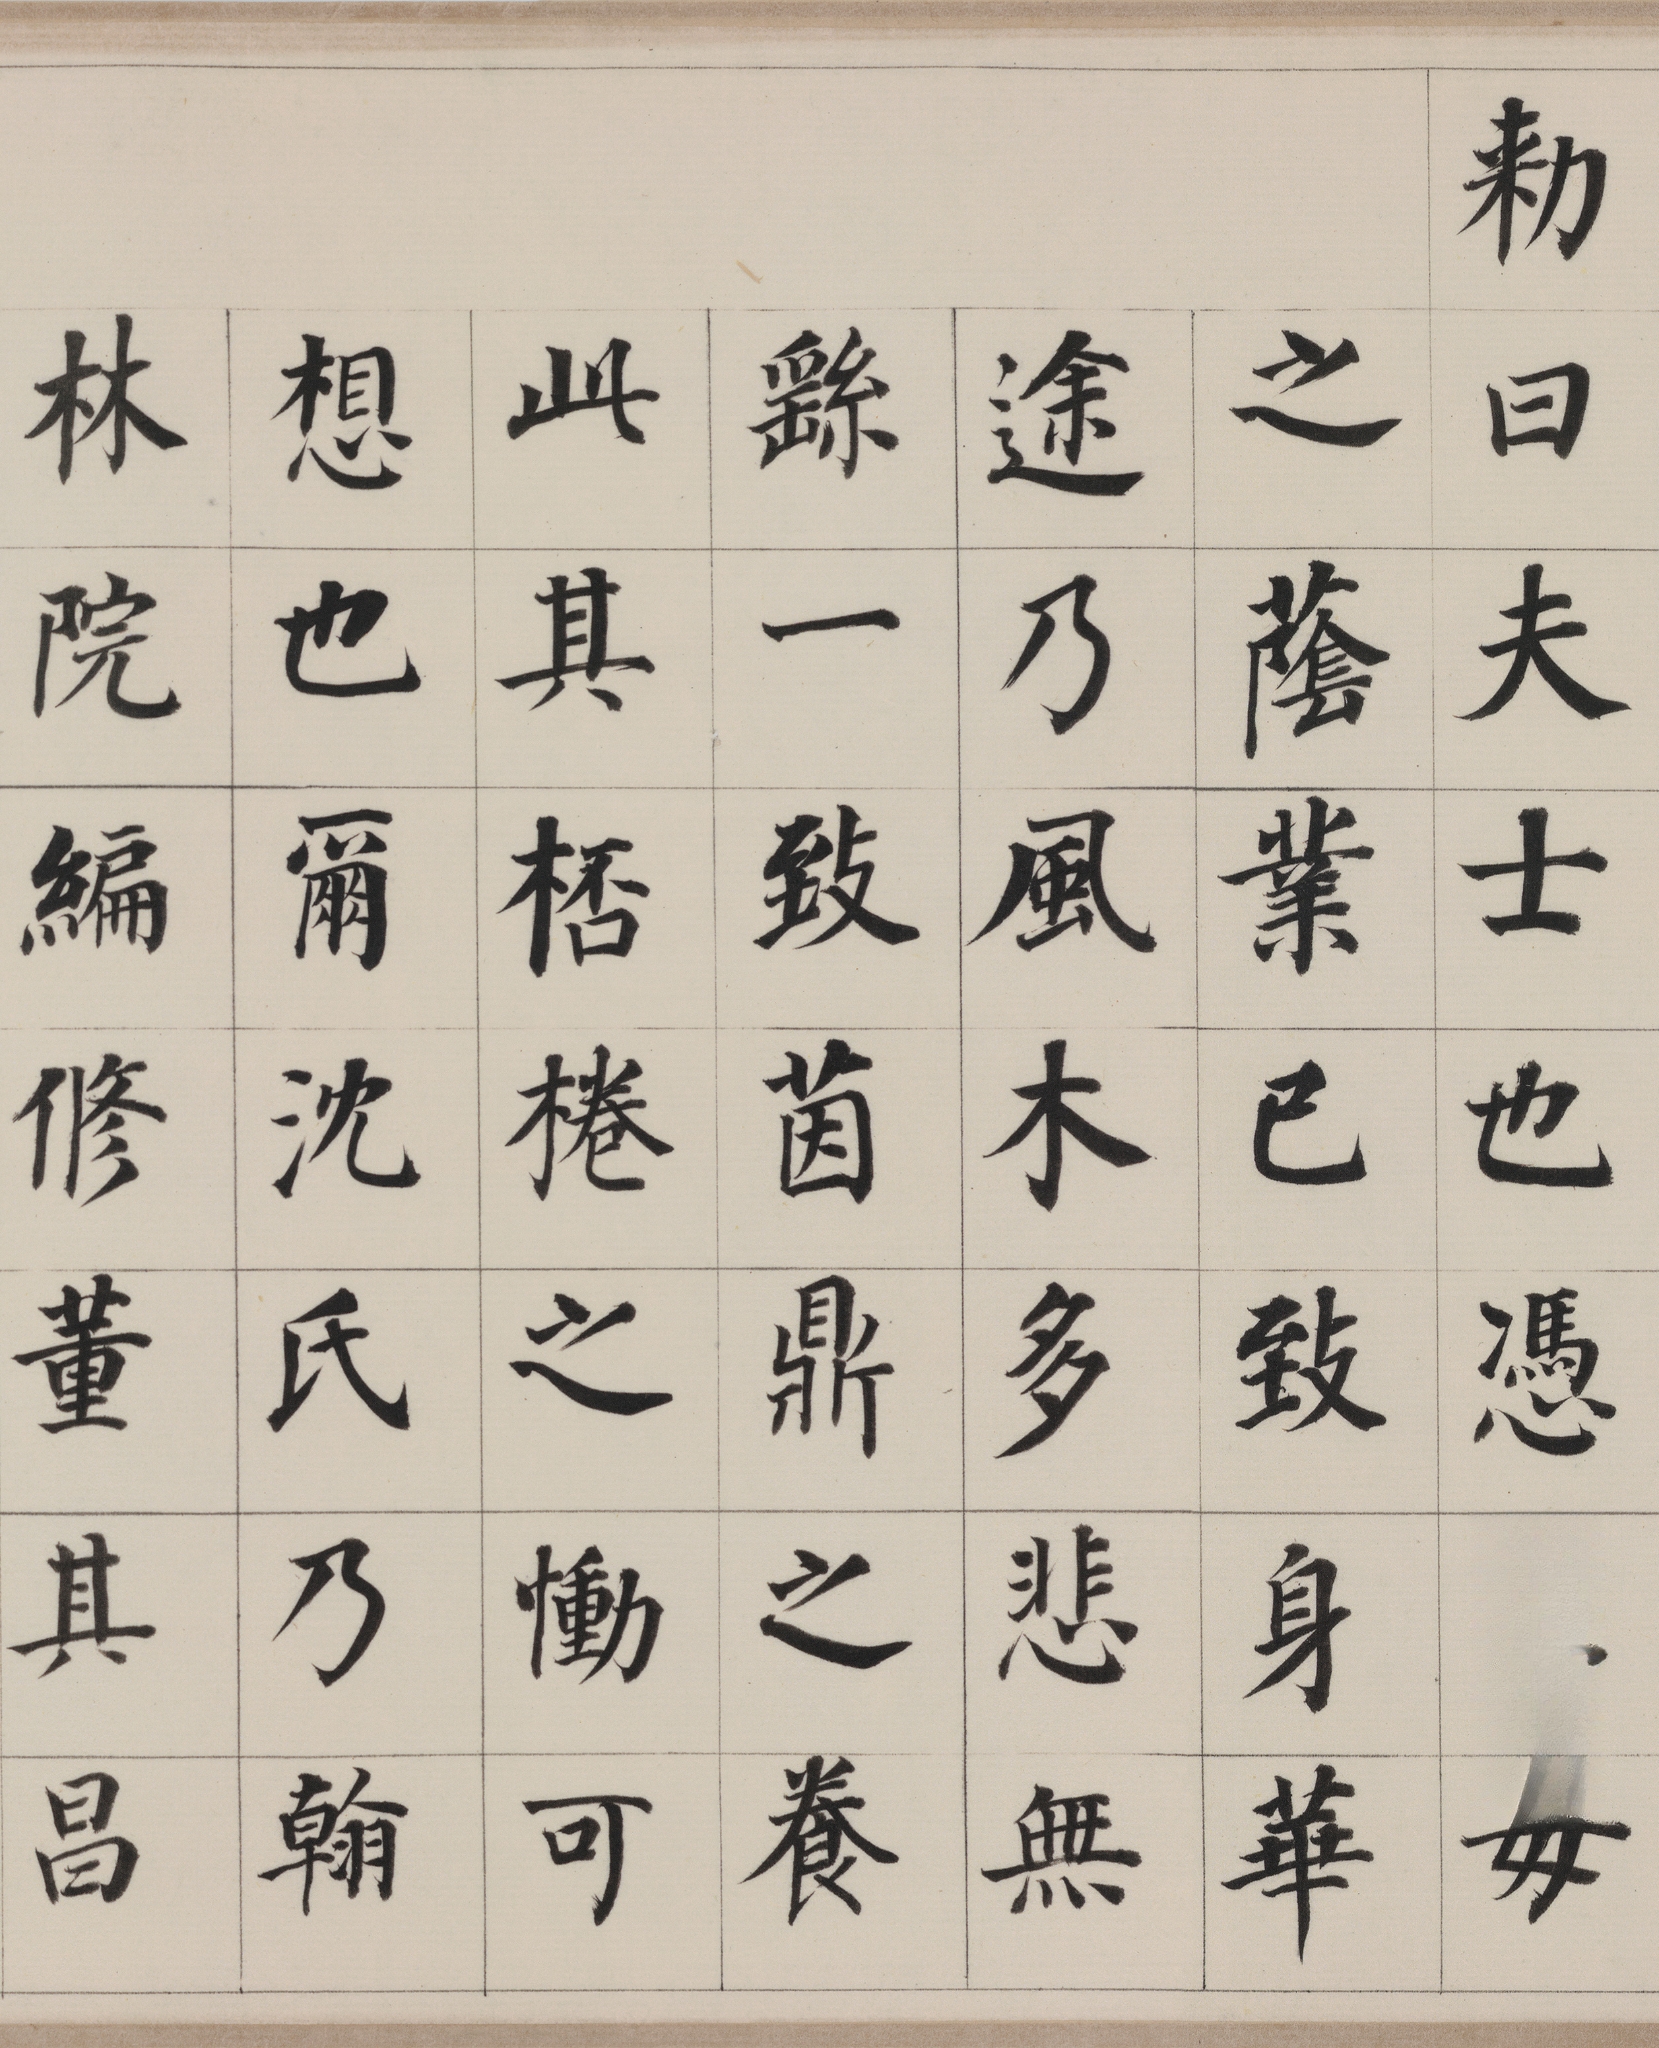 勑曰夫士也憑
之蔭業已致身華
途乃風木多悲無
繇一致茵鼎之養
此其桮棬之慟可
想也爾沈氏乃翰
林院編修董其昌